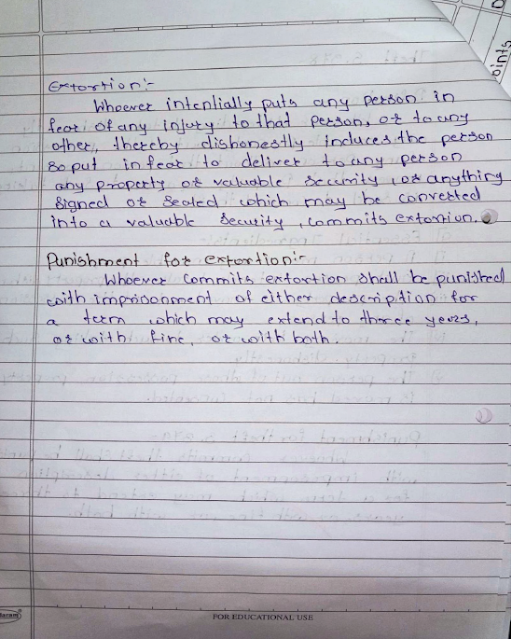 oints
Extortion :-
Whoever intentially puts any person in
fear of any injury to that person, or to any
other, thereby dishonestly induces the person
so put in fear to deliver to any person
any property or valuable security, or anything
signed or sealed which may be converted
into a valuable security, commits extortion.
Punishment for extortion :-
Whoever commits extortion shall be punished
with imprisonment of either description for
a term which may extend to three years,
or with fine, or with both.
FOR EDUCATIONAL USE